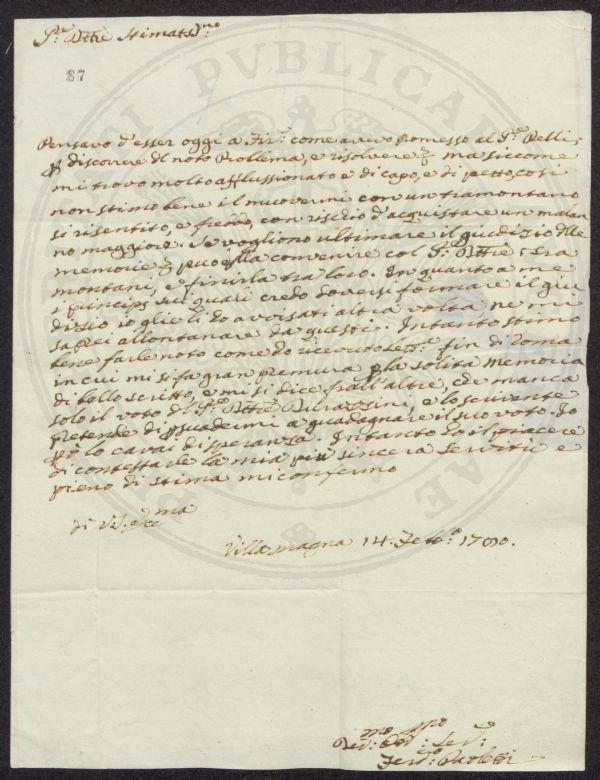 Sig.re Dtt.re Stimatis.mo
87
Pensavo d'esser oggi a Fir.e come avevo promesso al Sig.re Pelli,
p discorrere del noto Problema, e risolvere &, ma siccome
mi trovo molto afflussionato e di capo, e di petto, così
non stimo bene il muovermi con un tramontano
sì risentito, e freddo, con rischio d'acquistare un malan
no maggiore. Se vogliono ultimare il giudizio delle
memorie & può ella convenire col Sig.re Dttre Tra
montani, e finirla tra loro. In quanto a me
i principj sui quali credo doversi formare il giu
dizio io glieli do avvisati altra volta, ne mi
saprei allontanare da questi. Intanto stimo
bene farle noto come ho ricevuto lett.a fin di Roma
in cui mi si fa gran premura p la solita memoria
di bollo scritto, e mi si dice frall'altre, che manca
solo il voto del Sig.re Dttre e lo scrivente
pretende di psuadermi a guadagnare il suo voto. Io
pò lo cavai di speranza. Intanto ho il piacere
di contestarle la mia più sincera servitù e
pieno di stima mi confermo
di V.S. Ecc.ma
Villamagna 14. Febb.o 1780.
Dev.mo Obb.mo Serv.e
Ferd.o Paoletti
PUBLICAE